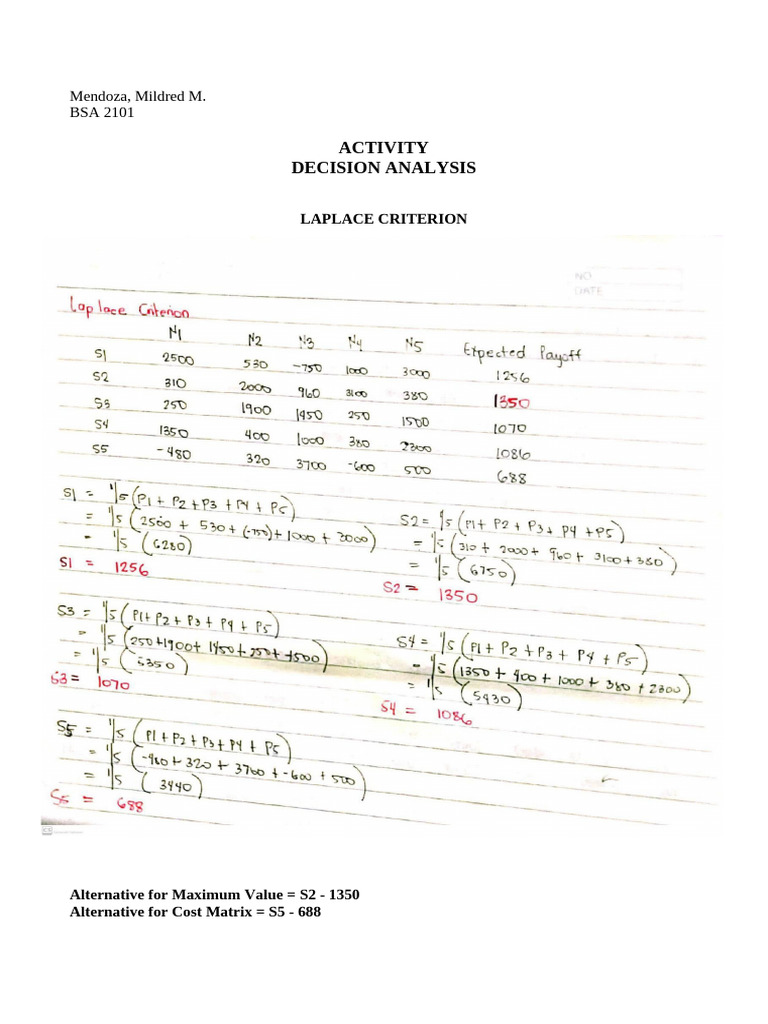 Mendoza, Mildred M.
BSA 2101
ACTIVITY
DECISION ANALYSIS
LAPLACE CRITERION
NO
DATE
Laplace Criterion
N1 N2 N3 N4 N5 Expected Payoff
S1 2500 530 -750 1000 3000 1256
S2 310 2000 960 3100 380 1350
S3 250 1900 1450 250 1500 1070
S4 1350 400 1000 380 2300 1086
S5 -480 320 3700 -600 500 688
S1 = 1/5 (P1 + P2 + P3 + P4 + P5)
= 1/5 (2500 + 530 + (-750) + 1000 + 3000)
= 1/5 (6280)
S1 = 1256
S2 = 1/5 (P1 + P2 + P3 + P4 + P5)
= 1/5 (310 + 2000 + 960 + 3100 + 380)
= 1/5 (6750)
S2 = 1350
S3 = 1/5 (P1 + P2 + P3 + P4 + P5)
= 1/5 (250 + 1900 + 1450 + 250 + 1500)
= 1/5 (5350)
S3 = 1070
S4 = 1/5 (P1 + P2 + P3 + P4 + P5)
= 1/5 (1350 + 400 + 1000 + 380 + 2300)
= 1/5 (5430)
S4 = 1086
S5 = 1/5 (P1 + P2 + P3 + P4 + P5)
= 1/5 (-480 + 320 + 3700 + -600 + 500)
= 1/5 (3440)
S5 = 688
CS
Alternative for Maximum Value = S2 - 1350
Alternative for Cost Matrix = S5 - 688